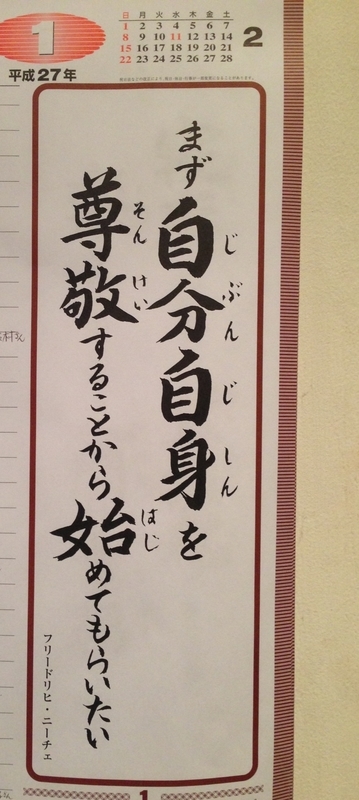 1
平成27年
日 月 火 水 木 金 土
1 2 3 4 5 6 7
8 9 10 11 12 13 14
15 16 17 18 19 20 21
22 23 24 25 26 27 28
2
まず自分自身を
じぶんじしん
尊敬することから始めてもらいたい
そんけい
はじ
フリードリヒ・ニーチェ
1